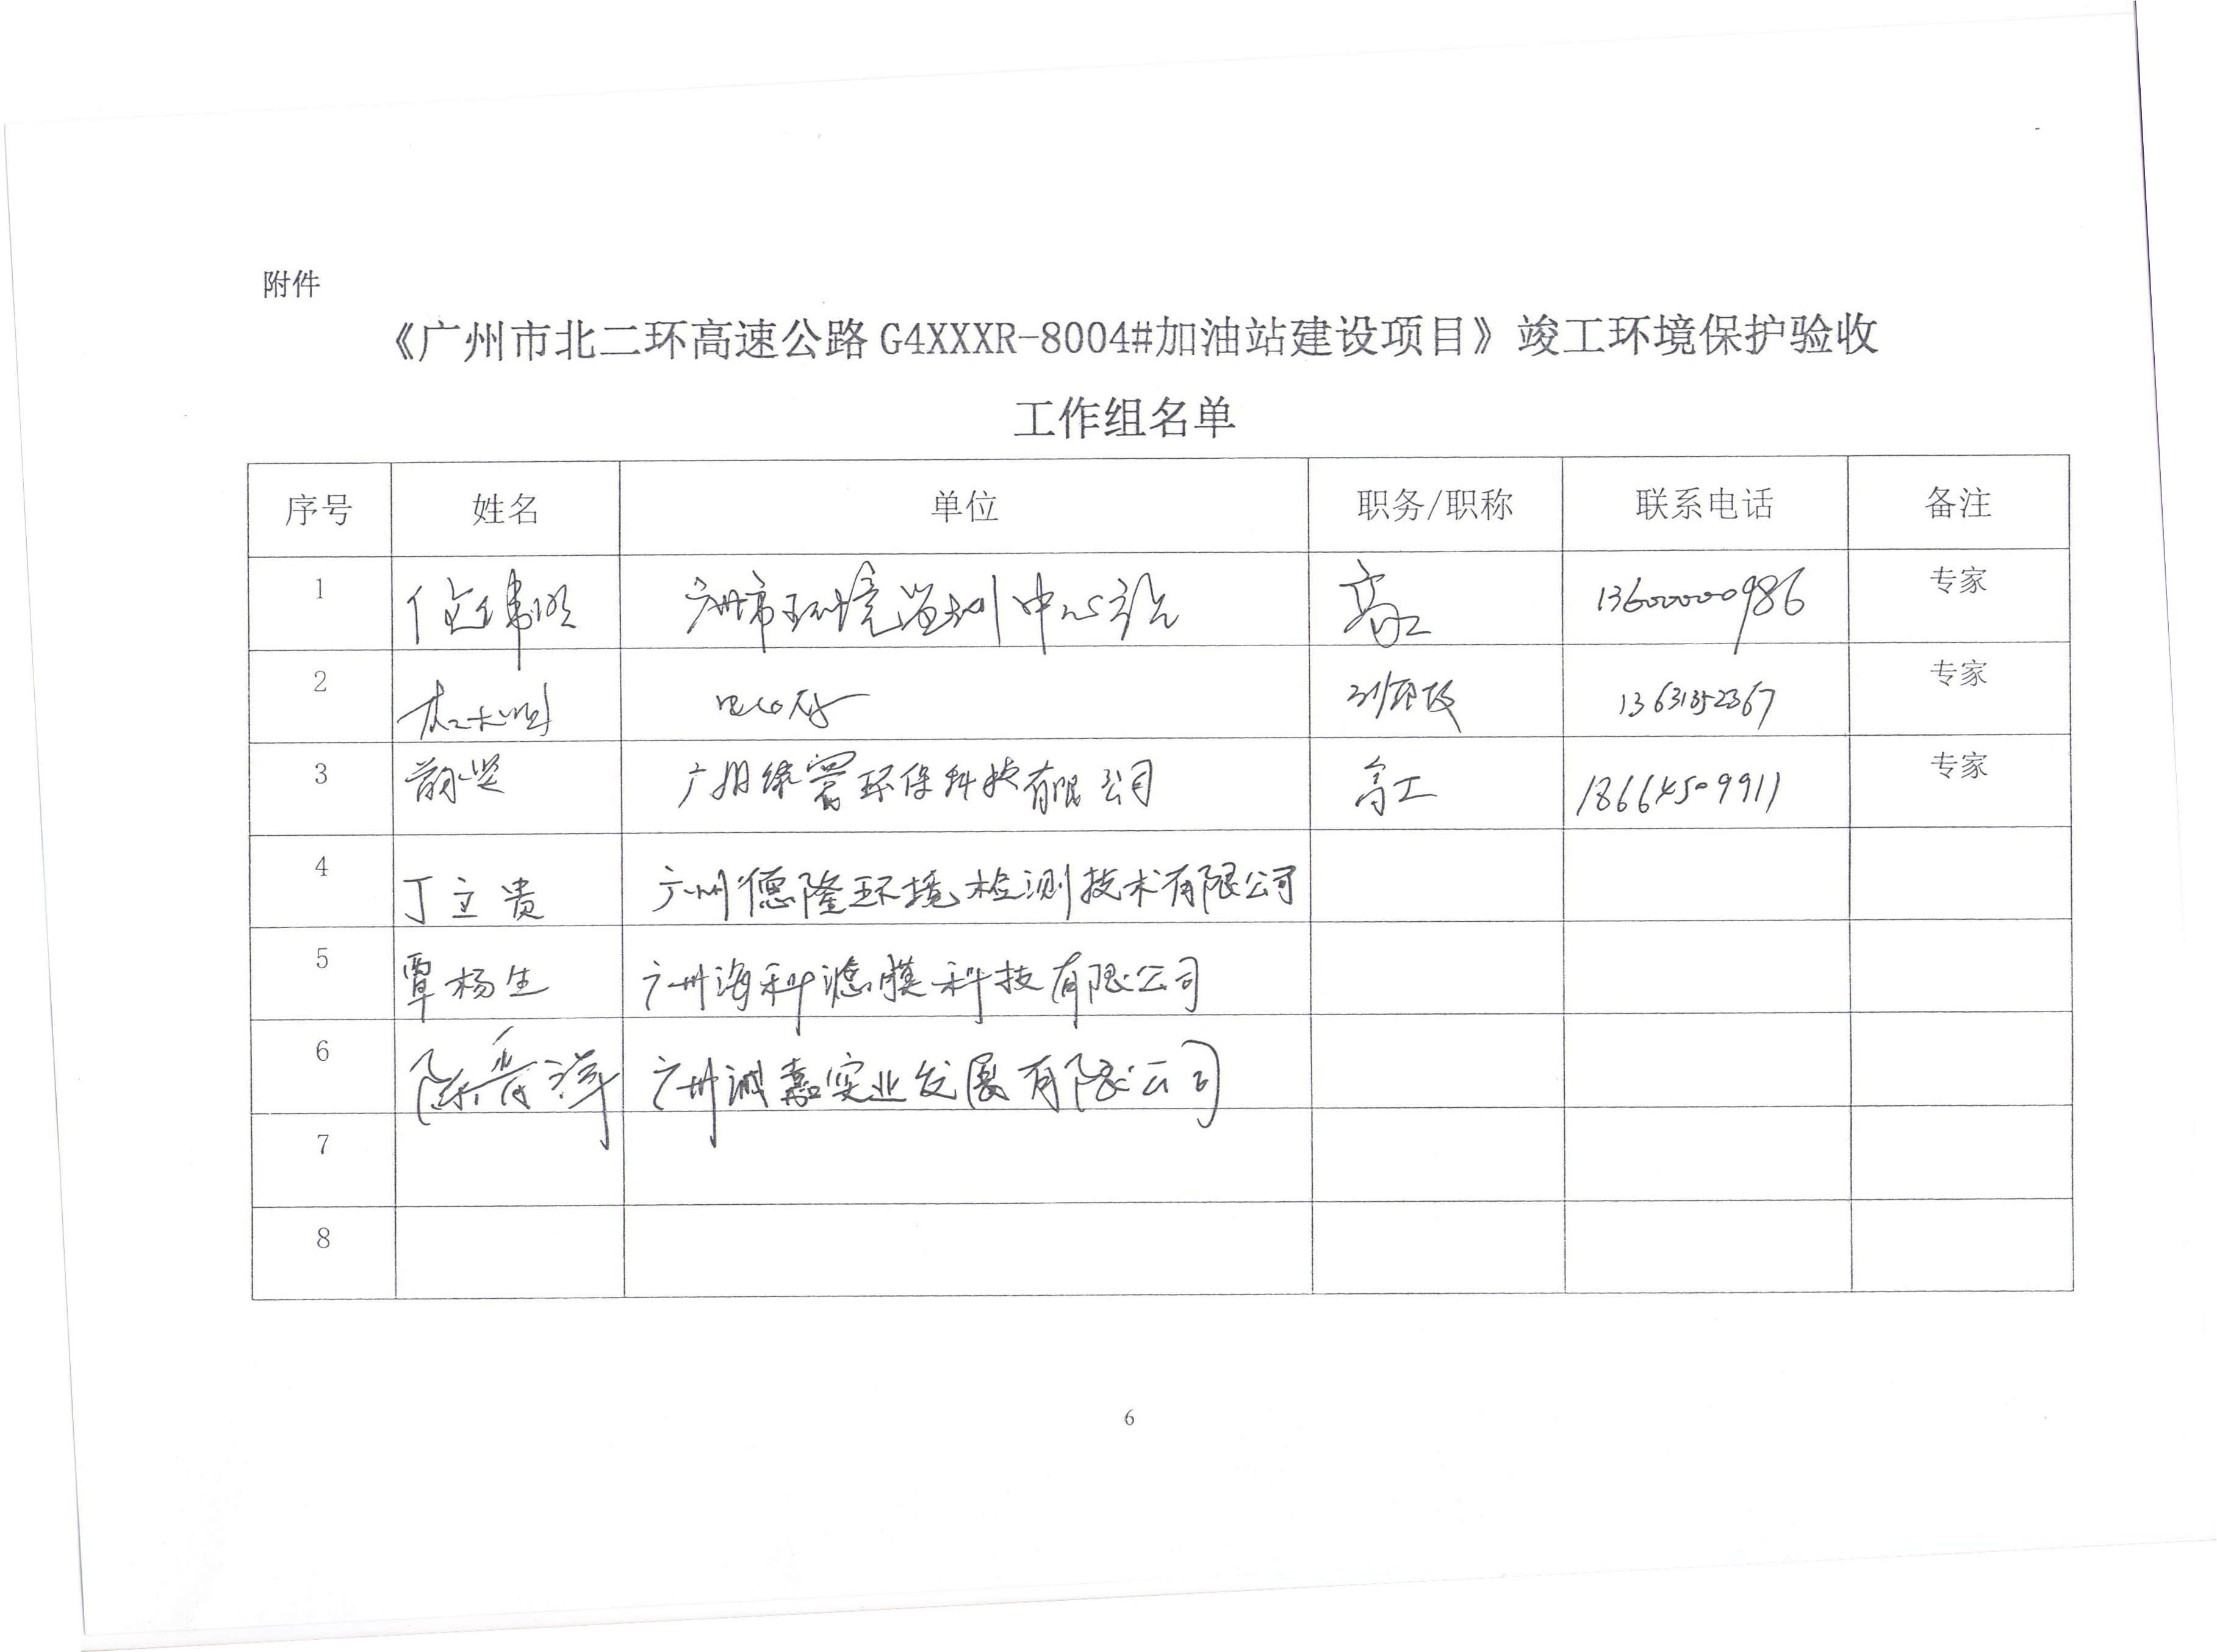 附件
《广州市北二环高速公路G4XXXR-8004#加油站建设项目》竣工环境保护验收
工作组名单
序号 姓名 单位 职务/职称 联系电话 备注
1 广州市环境监测中心站 高工 13600000986 专家
2 副教授 13631352367 专家
3 广州 环保科技有限公司 高工 18664509911 专家
4 丁立贵 广州德隆环境检测技术有限公司
5 覃杨生 广州海科滤膜科技有限公司
6 陈 洋 广州诚嘉实业发展有限公司
7
8
6